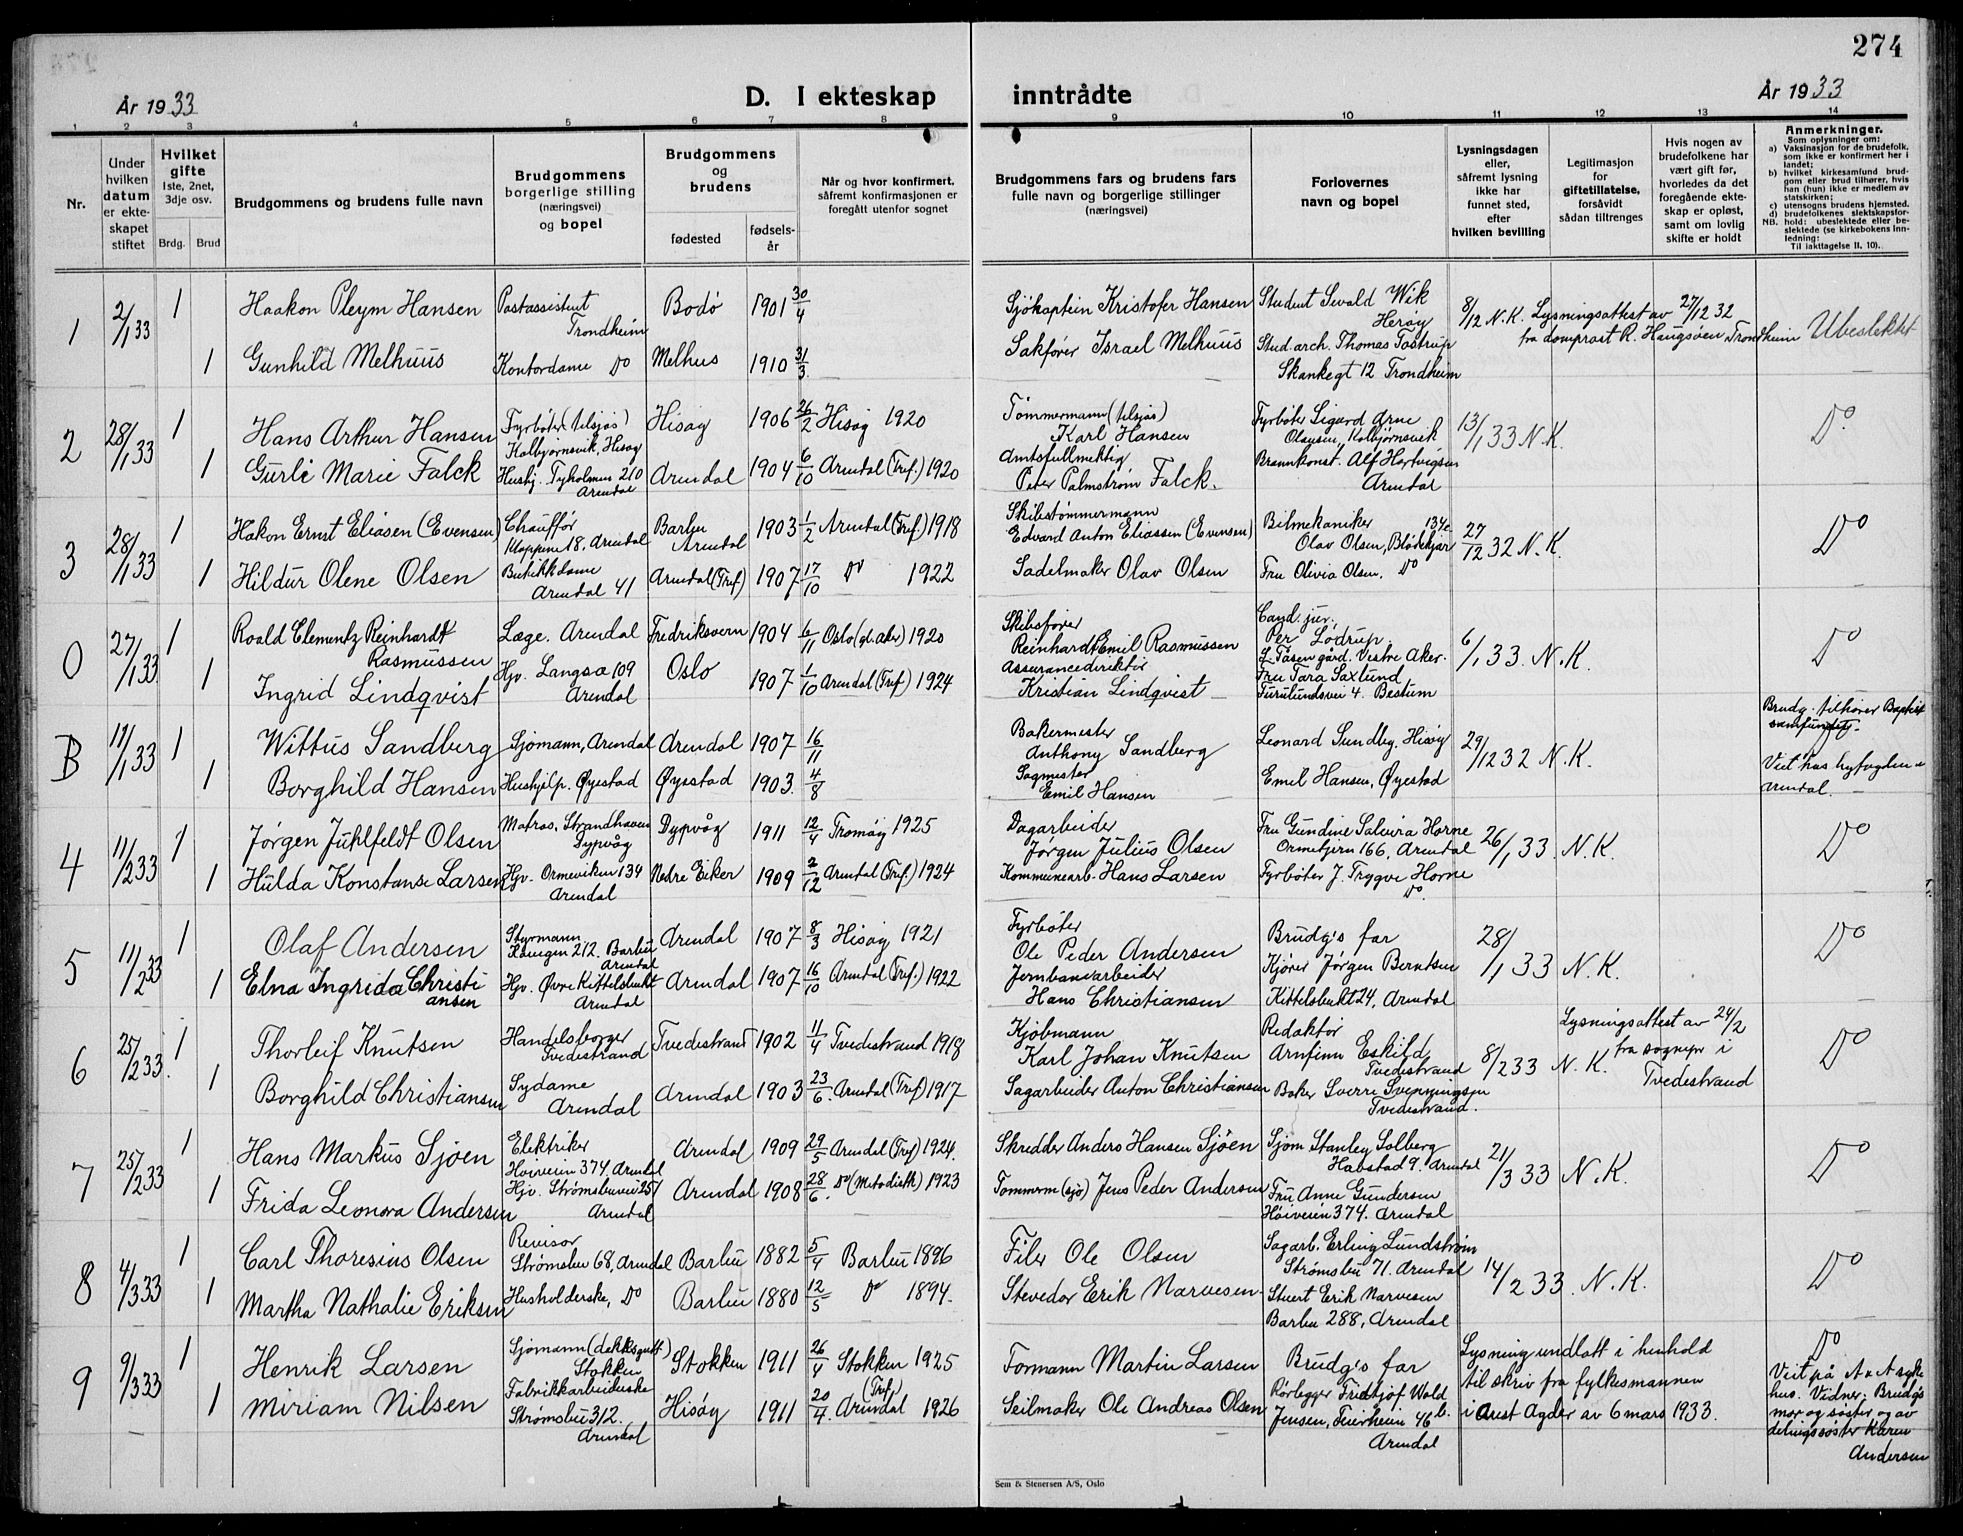 274
År 1933
D. I ekteskap inntrådte
År 1933
1 2 3 4 5 6 7 8 9 10 11 12 13 14
Nr.
Under hvilken datum er ekteskapet stiftet
Hvilket gifte 1ste, 2net, 3dje osv.
Brdg. Brud
Brudgommens og brudens fulle navn
Brudgommens borgerlige stilling (næringsvei) og bopel
Brudgommens og brudens
fødested
fødselsår
Når og hvor konfirmert, såfremt konfirmasjonen er foregått utenfor sognet
Brudgommens fars og brudens fars fulle navn og borgerlige stillinger (næringsvei)
Forlovernes navn og bopel
Lysningsdagen eller, såfremt lysning ikke har funnet sted, efter hvilken bevilling
Legitimasjon for giftetillatelse, forsåvidt sådan tiltrenges
Hvis nogen av brudefolkene har vært gift før, hvorledes da det foregående ekteskap er opløst, samt om lovlig skifte er holdt
Anmerkninger.
Som oplysninger om:
a) Vaksinasjon for de brudefolk, som ikke er konfirmert her i landet;
b) hvilket kirkesamfund brudgom eller brud tilhører, hvis han (hun) ikke er medlem av statskirken;
c) utensogns brudens hjemsted.
d) brudefolkenes slektskapsforhold: ubeslektede eller beslektede (se kirkebokens innledning:
NB. Til iakttagelse II, 10).
1 2/1 33 1 Haakon Pleym Hansen Postassistent Trondheim Bodö 1901 30/4 Sjökaptein Kristofer Hansen Student Sevald Wik Heröy 8/12 N.K. Lysningsattest av 27/12 32 fra domprost R. Haugsöen Trondheim Ubeslektet
1 Gunhild Melhuus Kontordame Do Melhus 1910 31/3 Sakfører Israel Melhuus Stud. arch. Thomas Tostrup Skankegt 12 Trondheim
2 28/1 33 1 Hans Arthur Hansen Fyrböter (tilsjøs) Kolbjørnsvik, Hisøy Hisøy 1906 26/2 Hisøy 1920 Tømmermann (tilsjøs) Karl Hansen Fyrböter Sigurd Arne Olausen, Kolbjørnsvik 13/1 33 N.K. Do
1 Gurli Marie Falck Hushj. Tyholmen 210 Arendal Arendal 1904 6/10 Arendal (Tref.) 1920 Amtsfullmektig Peter Palmstrøm Falck. Brannkonst. Alf Hartvigsen Arendal
3 28/1 33 1 Hakon Ernst Eliasen (Evensen) Chauffør Kloppene 18, Arendal Barbu Arendal 1903 1/2 Arendal (Tref) 1918 Skibstømmermann Edvard Anton Eliassen (Evensen) Bilmekaniker Olav Olsen, Blødekjær 134c 27/12 32 N.K. Do
1 Hildur Olene Olsen Butikkdame Arendal 41 Arendal (Tref) 1907 17/10 Do 1922 Sadelmaker Olav Olsen Fru Olivia Olsen. Do
0 27/1 33 1 Roald Clementz Reinhardt Rasmussen Læge. Arendal Fredriksvern 1904 6/11 Oslo (gl. aker) 1920 Skibsfører Reinhardt Emil Rasmussen Cand. jur. Per Lødrup. Tåsen gård. Vestre Aker. 6/1 33. N.K. Do
1 Ingrid Lindqvist Hjv. Langsæ 109 Arendal Oslo 1907 1/10 Arendal (Tref) 1924 Assurancedirektør Kristian Lindqvist Fru Tara Saxlund, Furulundsvei 4. Bestum
B 11/1 33 1 Wittus Sandberg Sjømann, Arendal Arendal 1907 16/11 Bakermester Anthony Sandberg Leonard Sundby. Hisøy 29/12 32 N.K. Brudg. tilhører Baptist samfundet.
1 Borghild Hansen Hushjelp. Øyestad Øyestad 1903. 4/8 Sagmester Emil Hansen Emil Hansen, Øyestad Viet hos byfogden i Arendal.
4 11/2 33 1 Jørgen Juhlfeldt Olsen Matros, Strandhaven Dypvåg Dypvåg 1911 12/4 Tromøy 1925 Dagarbeider Jørgen Julius Olsen Fru Gundine Salvira Horne Ormetjern 166, Arendal 26/1 33 N.K. Do
1 Hulda Konstanse Larsen Hjv. Ormeviken 134 Arendal Nedre Eiker 1909 2/12 Arendal (Tref.) 1924 Kommunearb. Hans Larsen Fyrbøter J. Trygve Horne Do.
5 11/2 33 1 Olaf Andersen Styrmann 212. Barbu Arendal Arendal 1907 8/3 Hisøy 1921 Fyrbøter Ole Peder Andersen Brudg's far 28/1 33 N.K. Do
1 Elna Ingrida Christiansen Hjv. Øvre Kittelsbukt Arendal Arendal 1907 16/10 Arendal (Tref.) 1922 Jernbanearbeider Hans Christiansen Kjører Jørgen Berntsen Kittelsbukt 24, Arendal
6 25/2 33. 1 Thorleif Knutsen Handelsborger Tvedestrand Tvedestrand 1902 11/4 Tvedestrand 1918 Kjøbmann Karl Johan Knutsen Redaktør Arnfinn Eskild Tvedestrand 8/2 33 N.K. Lysningsattest av 24/2 fra sognepr i Tvedestrand Do
1 Borghild Christiansen Sydame Arendal Arendal 1903 23/6. Arendal (Tref) 1917 Sagarbeider Anton Christiansen Baker Sverre Svenningsen Tvedestrand.
7 25/2 33 1 Hans Markus Sjøen Elektriker Høiveien 374, Arendal Arendal 1909 29/5 Arendal (Tref) 1924. Skredder Anders Hansen Sjøen Sjøm Stanley Solberg Havstad 9. Arendal 21/3 33 N.K. Do
1 Frida Leonora Andersen Hjv. Strømsbuvei 251 Arendal Arendal 1908 28/6. Do (Metodisth) 1923 Tømmerm (sjø) Jens Peder Andersen Fru Anne Gundersen Høiveien 374. Arendal
8 4/3 33 1 Carl Thoresius Olsen Revisor Strømsbu 68, Arendal Barbu 1882 5/4 Barbu 1896 Filer Ole Olsen Sagarb. Erling Lundstrøm Strømsbu 71. Arendal 14/2 33. N.K. Do
1 Martha Nathalie Eriksen Husholderske, Do Barbu 1880 12/5 Do 1894. Stevedor Erik Narvesen Stuert Erik Narvesen Barbu 288, Arendal
9 9/3 33 1 Henrik Larsen Sjømann (dekksgutt) Stokken Stokken 1911 26/4 Stokken 1925 Formann Martin Larsen Brudg's far Lysning undlatt i henhold til skriv fra fylkesmannen i Aust Agder av 6 mars 1933. Do
1 Miriam Nilsen Fabrikkarbeiderske Strømsbu 312. Arendal Hisøy 1911 20/4. Arendal (Tref) 1926 Seilmaker Ole Andreas Olsen Rørlegger Fridtjof Wold Jensen, Feierheia 46 b. Arendal Viet på A.A sykehus. Vidner: Brudg's mor og søster og avdelingssøster Karen Andersen
Sem & Stenersen A/S, Oslo